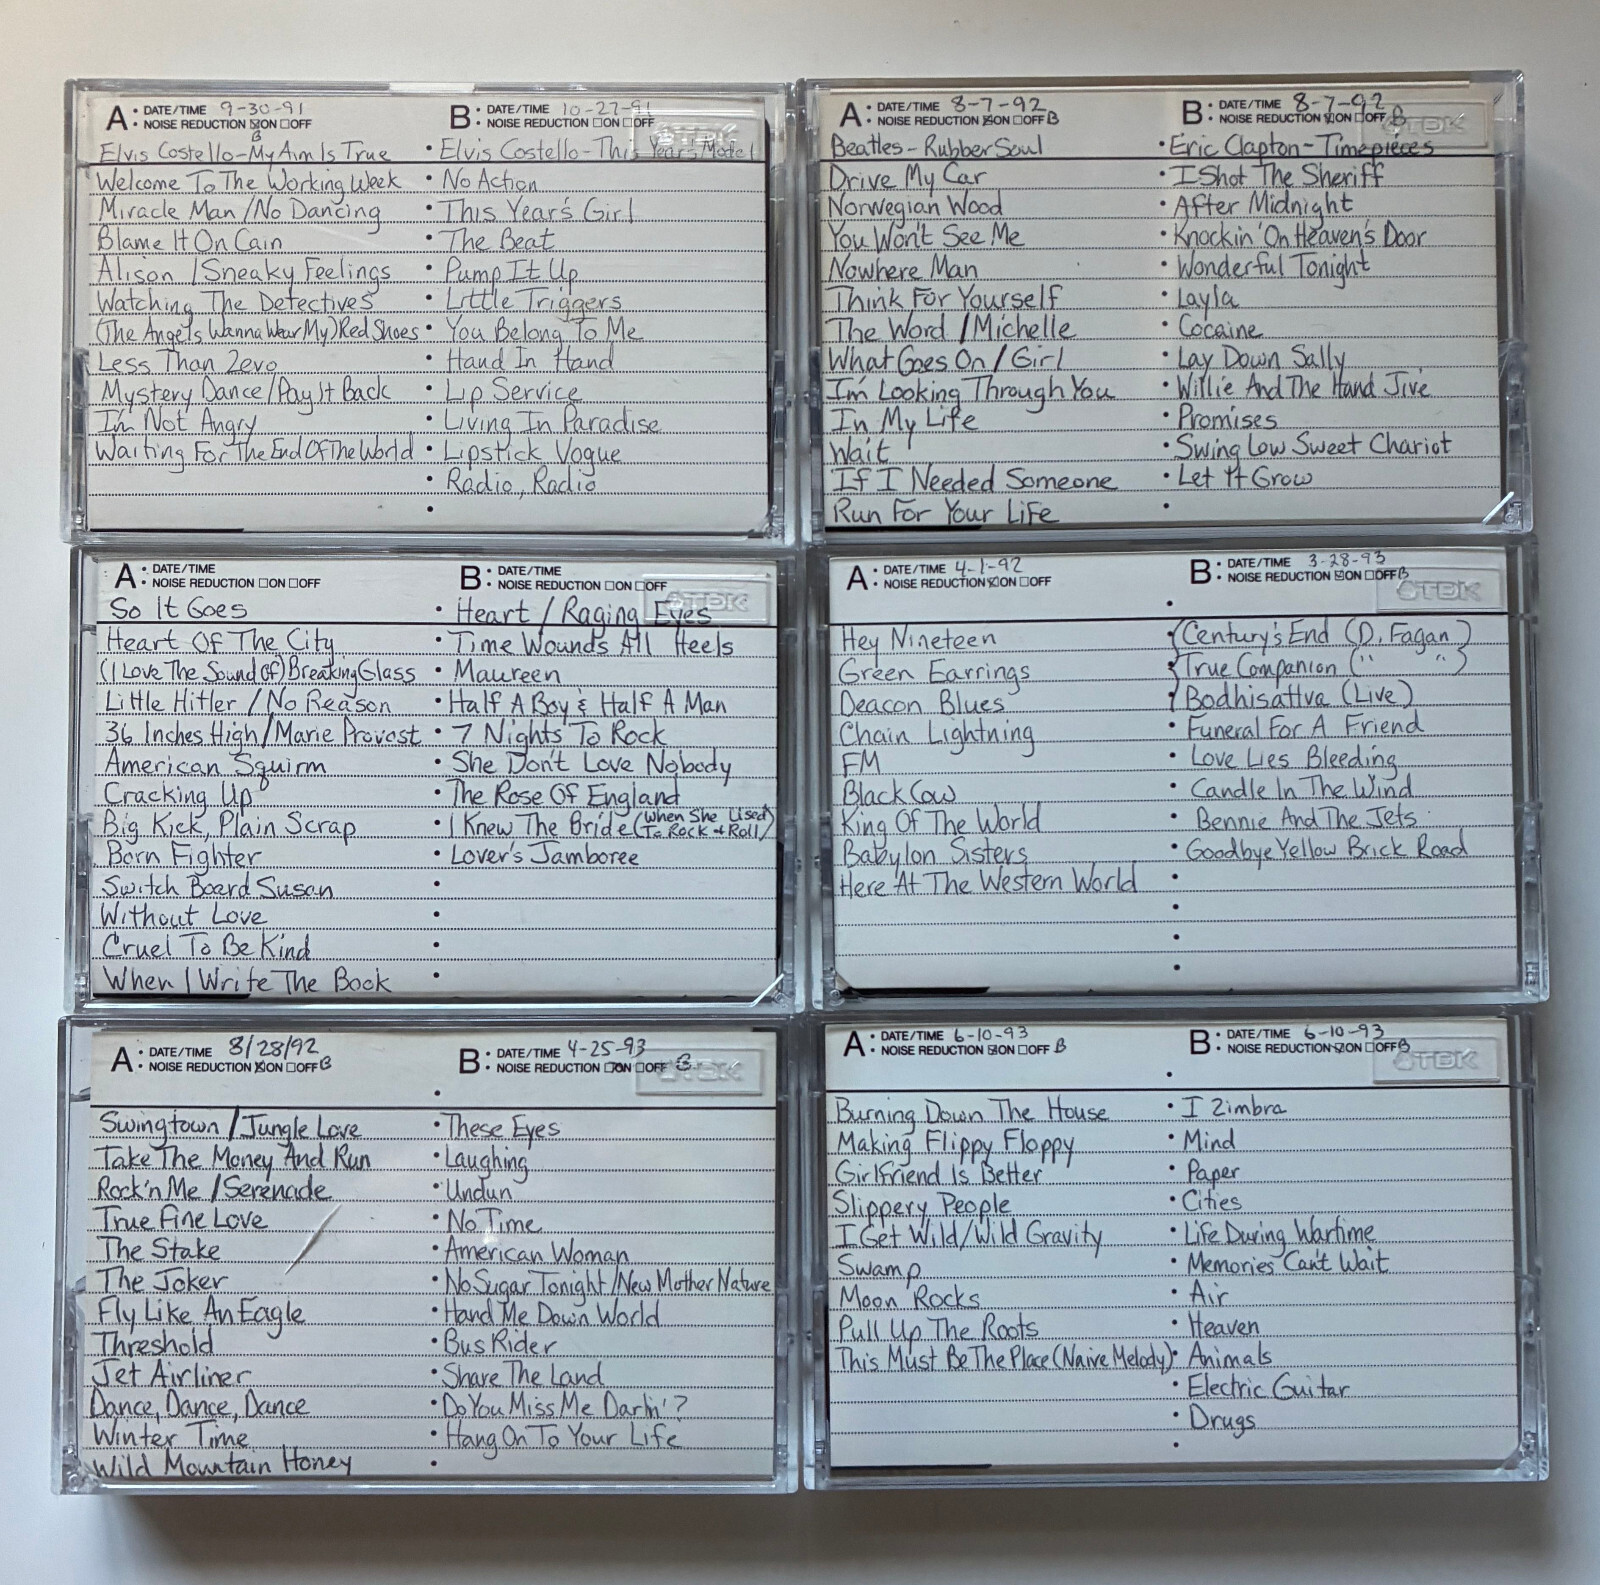 A: DATE/TIME 9-30-91
NOISE REDUCTION ☒ON ☐OFF
B
Elvis Costello-My Aim Is True
Welcome To The Working Week
Miracle Man/No Dancing
Blame It On Cain
Alison/Sneaky Feelings
Watching The Detectives
(The Angels Wanna Wear My) Red Shoes
Less Than Zero
Mystery Dance/Pay It Back
I'm Not Angry
Waiting For The End Of The World
B: DATE/TIME 10-27-91
NOISE REDUCTION ☐ON ☐OFF
TDK
• Elvis Costello-This Years Model
• No Action
• This Year's Girl
• The Beat
• Pump It Up
• Little Triggers
• You Belong To Me
• Hand In Hand
• Lip Service
• Living In Paradise
• Lipstick Vogue
• Radio, Radio
A: DATE/TIME 8-7-92
NOISE REDUCTION ☒ON ☐OFF B
Beatles-Rubber Soul
Drive My Car
Norwegian Wood
You Won't See Me
Nowhere Man
Think For Yourself
The Word/Michelle
What Goes On/Girl
I'm Looking Through You
In My Life
Wait
If I Needed Someone
Run For Your Life
B: DATE/TIME 8-7-92
NOISE REDUCTION ☒ON ☐OFF B
TDK
• Eric Clapton-Timepieces
• I Shot The Sheriff
• After Midnight
• Knockin' On Heaven's Door
• Wonderful Tonight
• Layla
• Cocaine
• Lay Down Sally
• Willie And The Hand Jive
• Promises
• Swing Low Sweet Chariot
• Let It Grow
A: DATE/TIME
NOISE REDUCTION ☐ON ☐OFF
So It Goes
Heart Of The City
(I Love The Sound Of) Breaking Glass
Little Hitler/No Reason
36 Inches High/Marie Provost
American Squirm
Cracking Up
Big Kick, Plain Scrap
Born Fighter
Switch Board Susan
Without Love
Cruel To Be Kind
When I Write The Book
B: DATE/TIME
NOISE REDUCTION ☐ON ☐OFF
TDK
• Heart/Raging Eyes
• Time Wounds All Heels
• Maureen
• Half A Boy & Half A Man
• 7 Nights To Rock
• She Don't Love Nobody
• The Rose Of England
• I Knew The Bride (When She Used To Rock + Roll)
• Lover's Jamboree
A: DATE/TIME 4-1-92
NOISE REDUCTION ☒ON ☐OFF
Hey Nineteen
Green Earrings
Deacon Blues
Chain Lightning
FM
Black Cow
King Of The World
Babylon Sisters
Here At The Western World
B: DATE/TIME 3-28-93
NOISE REDUCTION ☒ON ☐OFF B
TDK
• Century's End (D. Fagan)
• True Companion (" ")
• Bodhisattva (Live)
• Funeral For A Friend
• Love Lies Bleeding
• Candle In The Wind
• Bennie And The Jets
• Goodbye Yellow Brick Road
A: DATE/TIME 8/28/92
NOISE REDUCTION ☒ON ☐OFF B
Swingtown/Jungle Love
Take The Money And Run
Rock'n Me/Serenade
True Fine Love
The Stake
The Joker
Fly Like An Eagle
Threshold
Jet Airliner
Dance, Dance, Dance
Winter Time
Wild Mountain Honey
B: DATE/TIME 4-25-93
NOISE REDUCTION ☒ON ☐OFF B
TDK
• These Eyes
• Laughing
• Undun
• No Time
• American Woman
• No Sugar Tonight/New Mother Nature
• Hand Me Down World
• Bus Rider
• Share The Land
• Do You Miss Me Darlin'?
• Hang On To Your Life
A: DATE/TIME 6-10-93
NOISE REDUCTION ☒ON ☐OFF B
Burning Down The House
Making Flippy Floppy
Girlfriend Is Better
Slippery People
I Get Wild/Wild Gravity
Swamp
Moon Rocks
Pull Up The Roots
This Must Be The Place (Naive Melody)
B: DATE/TIME 6-10-93
NOISE REDUCTION ☒ON ☐OFF B
TDK
• I Zimbra
• Mind
• Paper
• Cities
• Life During Wartime
• Memories Can't Wait
• Air
• Heaven
• Animals
• Electric Guitar
• Drugs